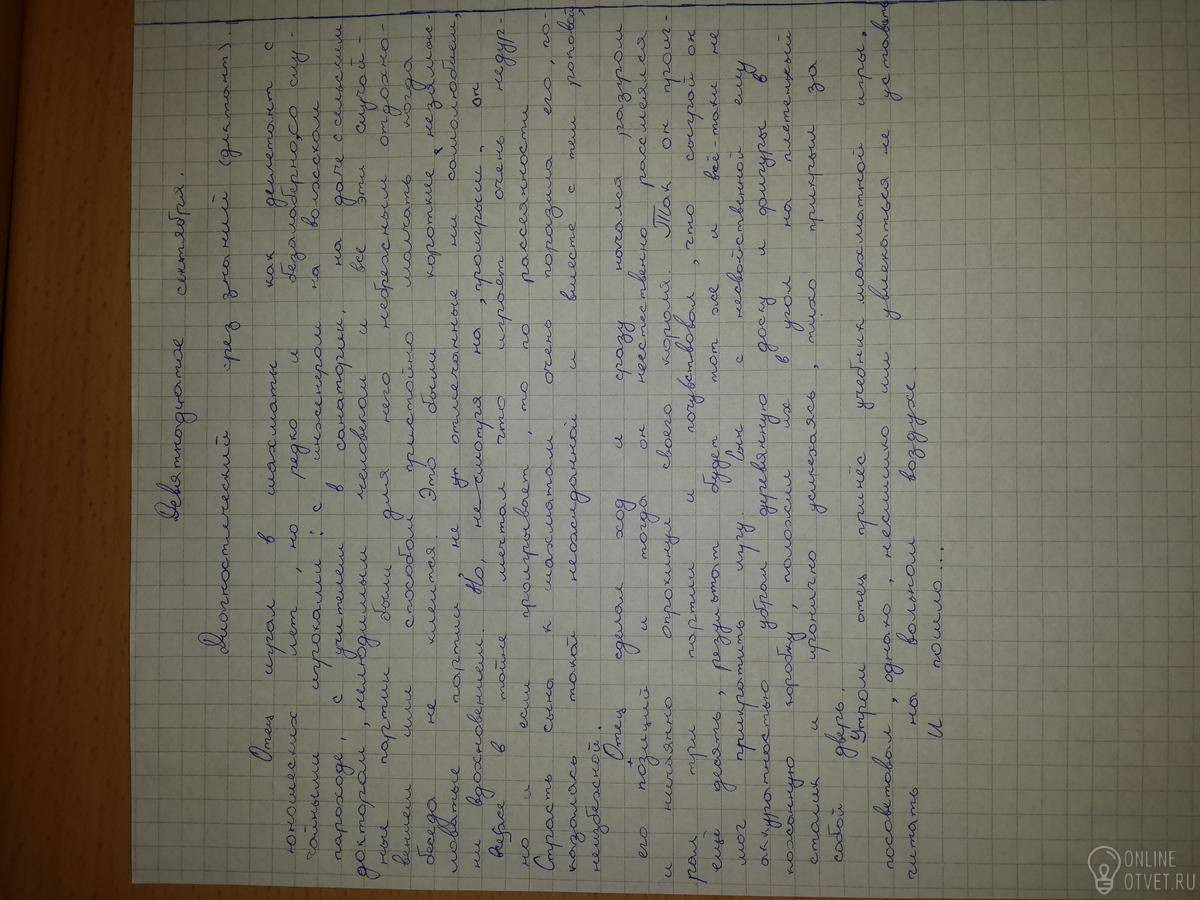 Девятнадцатое сентября.
Диагностический срез знаний (диктант).
Отец играл в шахматы как дилетант с
юношеских лет, но редко и безалаберно, со слу-
чайными игроками: с инженером на волжском
пароходе, с учителем в санатории, на даче с сельским
доктором, нелюдимым человеком и все эти случай-
ные партии были для него небрежным отдохно-
вением или способом пристойно молчать, когда
беседа не клеится. Это были короткие, незамыс-
ловатые партии, не отмеченные ни самолюбием,
ни вдохновением. Но, не смотря на проигрыш, он
всё в тайне мечтал что играет очень недур-
но и если проигрывает, то по рассеянности
Страсть сына к шахматам очень поразила его, по-
казалась такой неожиданной и вместе с тем роковой,
неизбежной.
Отец сделал ход и сразу начался разгром
его позиций и тогда он неестественно рассмеялся
и нечаянно опрокинул своего короля. Так он проиг-
рал три партии и почувствовал, что сыграй он
ещё десять, результат будет тот же и всё-таки не
мог прикратить игру. Сын с несвойственной ему
аккуратностью убрал деревянную доску и фигуры в
кожанную коробку, положил их в угол на плетенный
столик и иронично усмехаясь, тихо прикрыл за
собой дверь.
Утром отец принёс учебник шахматной игры,
посоветовал, однако, неслишко им увлекаться не уставать
читать на вольном воздухе.
И пошло...
ONLINE
OTVET.RU